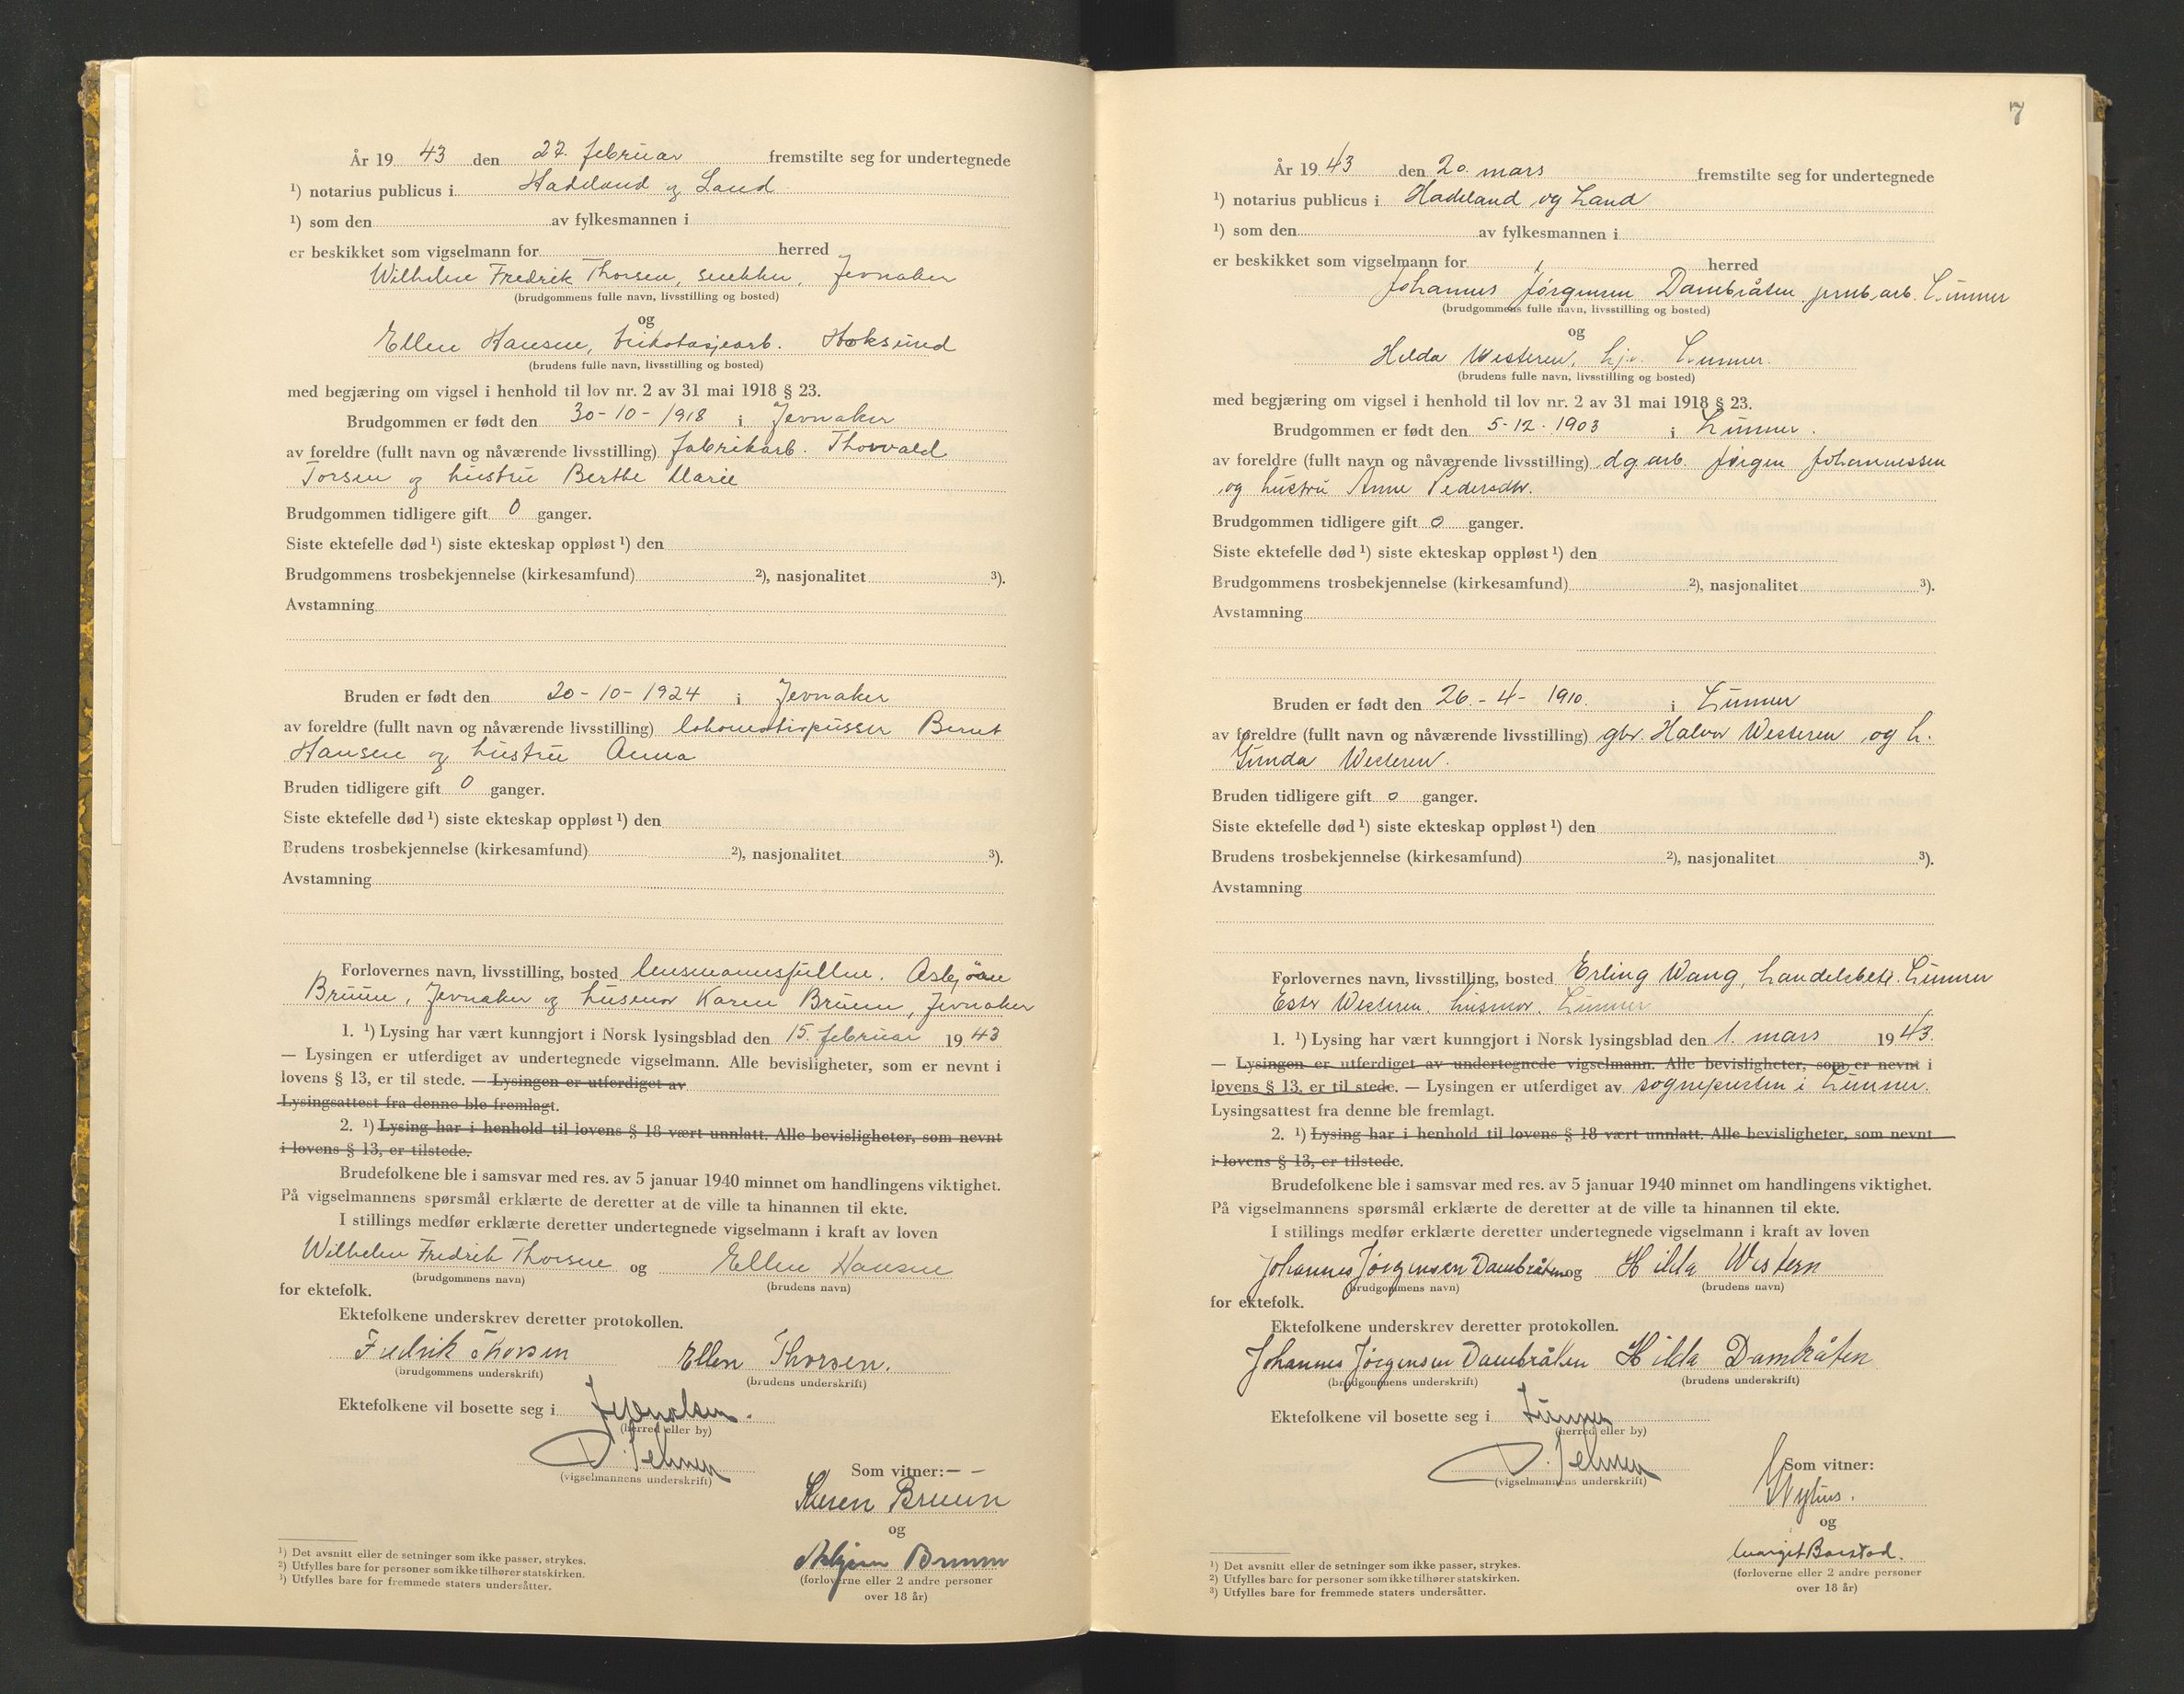 År 19 43 den 27. februar fremstilte seg for undertegnede
¹) notarius publicus i Hadeland og Land
¹) som den av fylkesmannen i
er beskikket som vigselmann for herred
Wilhelm Fredrik Thorsen, snekker, Jevnaker
(brudgommens fulle navn, livsstilling og bosted)
og
Ellen Hansen, trikotasjearb. Hoksund
(brudens fulle navn, livsstilling og bosted)
med begjæring om vigsel i henhold til lov nr. 2 av 31 mai 1918 § 23.
Brudgommen er født den 30-10-1918 i Jevnaker
av foreldre (fullt navn og nåværende livsstilling) fabrikarb. Thorvald
Torsen og hustru Berthe Marie
Brudgommen tidligere gift 0 ganger.
Siste ektefelle død ¹) siste ekteskap oppløst ¹) den
Brudgommens trosbekjennelse (kirkesamfund) ²), nasjonalitet ³).
Avstamning
Bruden er født den 20-10-1924 i Jevnaker
av foreldre (fullt navn og nåværende livsstilling) lokomotivpusser Bernt
Hansen og hustru Anna
Bruden tidligere gift 0 ganger.
Siste ektefelle død ¹) siste ekteskap oppløst ¹) den
Brudens trosbekjennelse (kirkesamfund) ²), nasjonalitet ³).
Avstamning
Forlovernes navn, livsstilling, bosted lensmannsfullm. Asbjörn
Bruun, Jevnaker og husmor Karen Bruun, Jevnaker
1. ¹) Lysing har vært kunngjort i Norsk lysingsblad den 15. februar 19 43
— Lysingen er utferdiget av undertegnede vigselmann. Alle bevisligheter, som er nevnt i
lovens § 13, er til stede. — Lysingen er utferdiget av
Lysingsattest fra denne ble fremlagt.
2. ¹) Lysing har i henhold til lovens § 18 vært unnlatt. Alle bevisligheter, som nevnt
i lovens § 13, er tilstede.
Brudefolkene ble i samsvar med res. av 5 januar 1940 minnet om handlingens viktighet.
På vigselmannens spørsmål erklærte de deretter at de ville ta hinannen til ekte.
I stillings medfør erklærte deretter undertegnede vigselmann i kraft av loven
Wilhelm Fredrik Thorsen og Ellen Hansen
(brudgommens navn) (brudens navn)
for ektefolk.
Ektefolkene underskrev deretter protokollen.
Fredrik Thorsen Ellen Thorsen.
(brudgommens underskrift) (brudens underskrift)
Ektefolkene vil bosette seg i
(herred eller by)
(vigselmannens underskrift)
Som vitner:
Karen Bruun
og
Asbjørn Bruun
(forloverne eller 2 andre personer
over 18 år)
¹) Det avsnitt eller de setninger som ikke passer, strykes.
²) Utfylles bare for personer som ikke tilhører statskirken.
³) Utfylles bare for fremmede staters undersåtter.
7
År 19 43 den 20. mars fremstilte seg for undertegnede
¹) notarius publicus i Hadeland og Land
¹) som den av fylkesmannen i
er beskikket som vigselmann for herred
Johannes Jørgensen Dambråten jernb.arb. Lunner
(brudgommens fulle navn, livsstilling og bosted)
og
Hilda Westeren, hj.v. Lunner.
(brudens fulle navn, livsstilling og bosted)
med begjæring om vigsel i henhold til lov nr. 2 av 31 mai 1918 § 23.
Brudgommen er født den 5-12-1903 i Lunner.
av foreldre (fullt navn og nåværende livsstilling) dg.arb. Jørgen Johannessen
og hustru Anne Pedersdtr.
Brudgommen tidligere gift 0 ganger.
Siste ektefelle død ¹) siste ekteskap oppløst ¹) den
Brudgommens trosbekjennelse (kirkesamfund) ²), nasjonalitet ³).
Avstamning
Bruden er født den 26.-4-1910. i Lunner
av foreldre (fullt navn og nåværende livsstilling) gbr. Halvor Westeren og h.
Gunda Westeren.
Bruden tidligere gift 0 ganger.
Siste ektefelle død ¹) siste ekteskap oppløst ¹) den
Brudens trosbekjennelse (kirkesamfund) ²), nasjonalitet ³).
Avstamning
Forlovernes navn, livsstilling, bosted Erling Wang, handelsbetj. Lunner
Ester Westeren, husmor, Lunner
1. ¹) Lysing har vært kunngjort i Norsk lysingsblad den 1. mars 19 43.
— Lysingen er utferdiget av undertegnede vigselmann. Alle bevisligheter, som er nevnt i
lovens § 13, er til stede. — Lysingen er utferdiget av sognepresten i Lunner.
Lysingsattest fra denne ble fremlagt.
2. ¹) Lysing har i henhold til lovens § 18 vært unnlatt. Alle bevisligheter, som nevnt
i lovens § 13, er tilstede.
Brudefolkene ble i samsvar med res. av 5 januar 1940 minnet om handlingens viktighet.
På vigselmannens spørsmål erklærte de deretter at de ville ta hinannen til ekte.
I stillings medfør erklærte deretter undertegnede vigselmann i kraft av loven
Johannes Jørgensen Dambråten og Hilda Western
(brudgommens navn) (brudens navn)
for ektefolk.
Ektefolkene underskrev deretter protokollen.
Johannes Jørgensen Dambråten Hilda Dambråten
(brudgommens underskrift) (brudens underskrift)
Ektefolkene vil bosette seg i Lunner
(herred eller by)
(vigselmannens underskrift)
Som vitner:
og
Margit Borstad.
(forloverne eller 2 andre personer
over 18 år)
¹) Det avsnitt eller de setninger som ikke passer, strykes.
²) Utfylles bare for personer som ikke tilhører statskirken.
³) Utfylles bare for fremmede staters undersåtter.